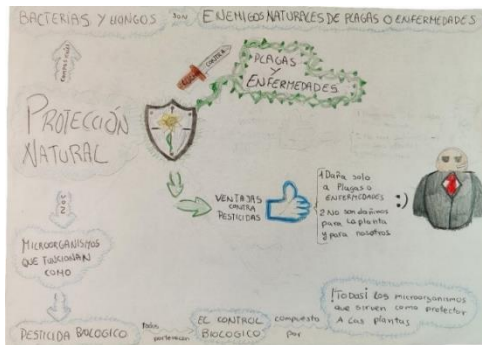 BACTERIAS Y HONGOS SON ENEMIGOS NATURALES DE PLAGAS O ENFERMEDADES
CONTRA
PLAGAS
Y
ENFERMEDADES
PROTECCIÓN
NATURAL
SON
VENTAJAS
CONTRA
PESTICIDAS
1 Daña solo
a Plagas o
ENFERMEDADES
2 No son dañinos
para la planta
y para nosotros
:)
MICROORGANISMOS
QUE FUNCIONAN
COMO
PESTICIDA BIOLOGICO
todos
pertenecen
EL CONTROL
BIOLOGICO
compuesto
por
!Todasi los microorganismos
que sirven como protector
A las plantas